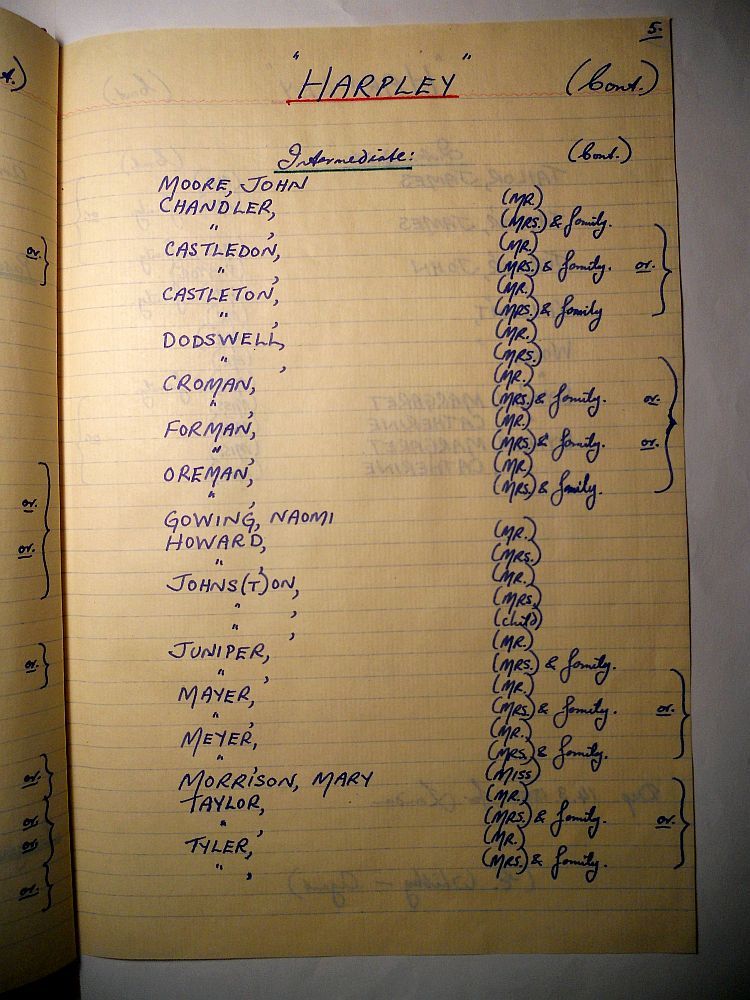 5.
"HARPLEY" (Cont.)
Intermediate: (Cont.)
MOORE, JOHN
CHANDLER, (MR.)
" , (MRS.) & family.
CASTLEDON, (MR.)
" , (MRS.) & family. or.
CASTLETON, (MR.)
" , (MRS.) & family
DODSWELL, (MR.)
" , (MRS.)
CROMAN, (MR.)
" , (MRS.) & family. or.
FORMAN, (MR.)
" , (MRS.) & family. or.
OREMAN, (MR.)
" , (MRS.) & family.
GOWING, NAOMI
HOWARD, (MR.)
" , (MRS.)
JOHNS(T)ON, (MR.)
" , (MRS.)
" , (child)
JUNIPER, (MR.)
" , (MRS.) & family.
MAYER, (MR.)
" , (MRS.) & family. or.
MEYER, (MR.)
" , (MRS.) & family.
MORRISON, MARY (MISS)
TAYLOR, (MR.)
" , (MRS.) & family. or.
TYLER, (MR.)
" , (MRS.) & family.
or.
or.
or.
or.
or.
or.
or.
or.